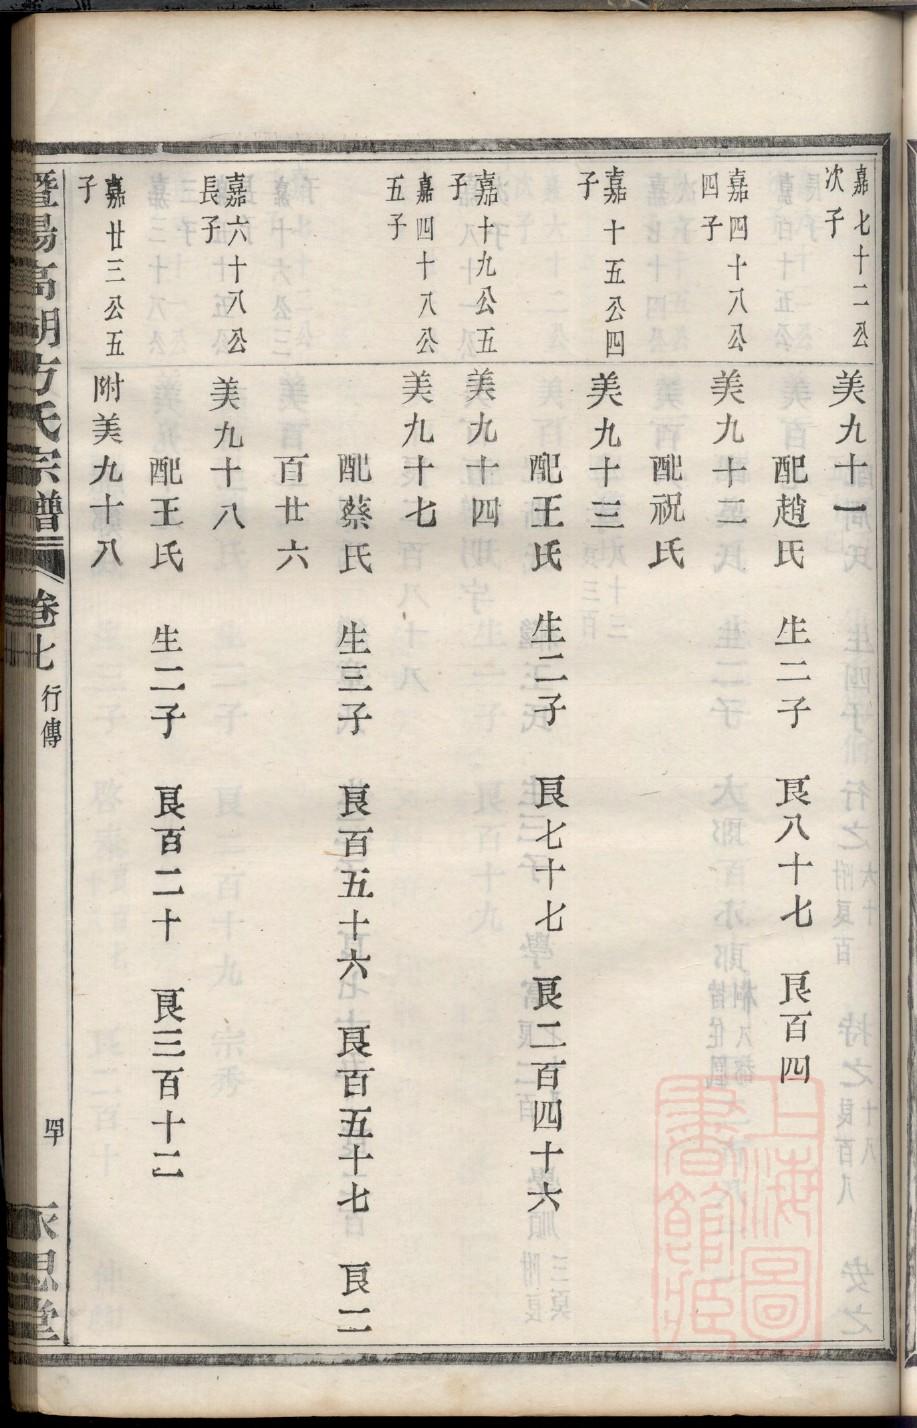 嘉七十二公
次子
美九十一
配趙氏 生二子 良八十七 良百四
嘉四十八公
四子
美九十二
配祝氏
嘉十五公四
子
美九十三
配王氏 生二子 良七十七 良二百四十六
嘉十九公五
子
美九十四
嘉四十八公
五子
美九十七
配蔡氏 生三子 良百五十六 良百五十七 良二
百廿六
嘉六十八公
長子
美九十八
配王氏 生二子 良百二十 良三百十二
嘉廿三公五
子
附美九十八
暨陽高湖方氏宗譜 卷七 行傳 罕 永思堂
上海圖
書館藏